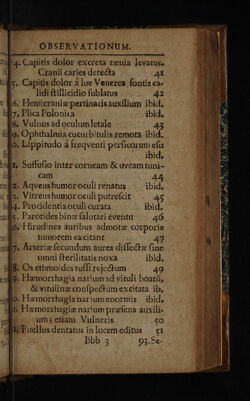 OBSERVATIONUM.
4. Capitis dolor excreta tænia levatus.
Cranii caries detecta 41
5. Capitis dolor à lue Venerea fontis ca-
lidi stillicidio sublatus 42
6. Hemicraniæ pertinacis auxilium ibid.
7. Plica Polonica ibid.
8. Vulnus ad oculum letale 43
9. Ophthalmia cucurbitulis remota ibid.
0. Lippitudo à freqventi persicorum esu
ibid.
1. Suffusio inter corneam & uveam tuni-
cam 44
2. Aqveus humor oculi renatus ibid.
3. Vitreus humor oculi putrescit 45
4. Procidentia oculi curata ibid.
5. Parotides binæ salutari eventu 46
6. Hirudines auribus admotæ corporis
tumorem excitant 47
7. Arteriæ secundum aures dissectæ sine
omni sterilitatis noxa ibid.
8. Os ethmoides tussi rejectum 49
9. Hæmorrhagia narium ad vituli boatū,
& vitulinæ conspectum excitata ib.
0. Hæmorrhagia narium enormis ibid.
1. Hæmorrhagiæ narium præsens auxili-
um; etiam Vulneris 50
2. Puellus dentatus in lucem editus 51
Bbb 3 93. Se-